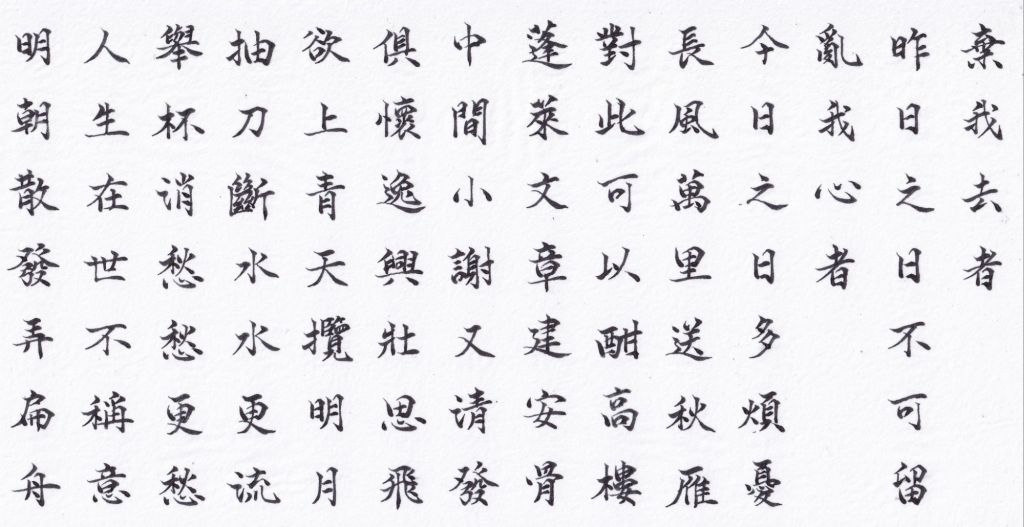 棄我去者
昨日之日不可留
亂我心者
今日之日多煩憂
長風萬里送秋雁
對此可以酣高樓
蓬萊文章建安骨
中間小謝又清發
俱懷逸興壯思飛
欲上青天攬明月
抽刀斷水水更流
舉杯消愁愁更愁
人生在世不稱意
明朝散發弄扁舟